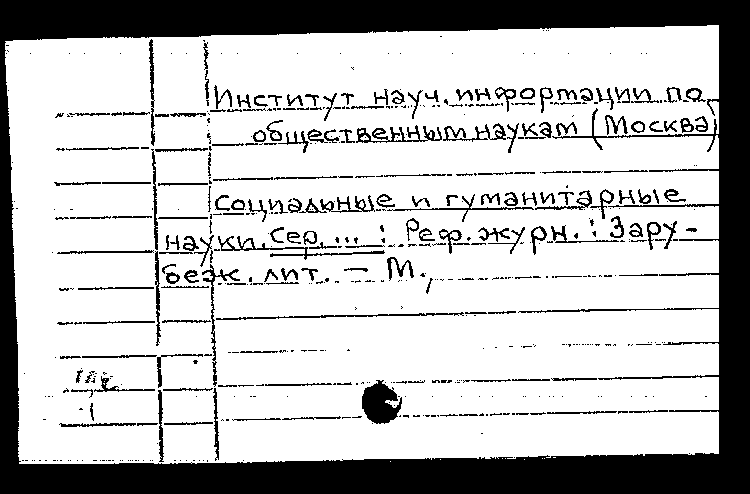 Институт науч. информации по
общественным наукам (Москва)
Социальные и гуманитарные
науки. Сер. ... : Реф. журн. : Зару-
беж. лит. — М.,